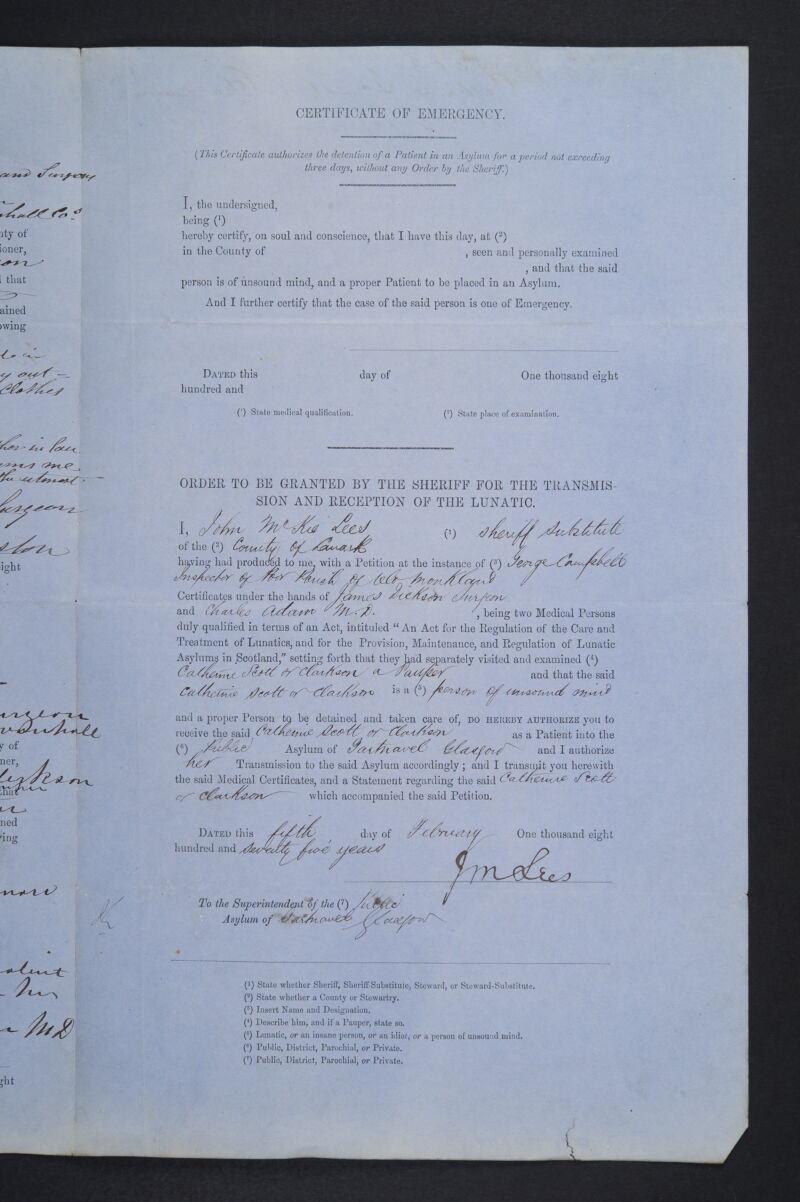 and Surgeon
hall Cos
nty of
ioner,
on
l that
ained
owing
y out =
Clothes
her in law
ms me
the utmost
urgeon
ston
ight
urgeon
vauxhall
y of
ner,
that
ned
ring
olent
his
MD
ght
CERTIFICATE OF EMERGENCY.
(This Certificate authorizes the detention of a Patient in an Asylum for a period not exceeding
three days, without any Order by the Sheriff.)
I, the undersigned,
being (¹)
hereby certify, on soul and conscience, that I have this day, at (²)
in the County of , seen and personally examined
, and that the said
person is of unsound mind, and a proper Patient to be placed in an Asylum.
And I further certify that the case of the said person is one of Emergency.
DATED this day of One thousand eight
hundred and
(¹) State medical qualification. (²) State place of examination.
ORDER TO BE GRANTED BY THE SHERIFF FOR THE TRANSMIS-
SION AND RECEPTION OF THE LUNATIC.
I, John McKie Lees (¹) Sheriff Substitute
of the (²) County of Lanark
having had produced to me, with a Petition at the instance of (³) George Campbell
Inspector of Poor Parish of Old Monkland
Certificates under the hands of James Dickson Surgeon
and Charles Adam M.D. , being two Medical Persons
duly qualified in terms of an Act, intituled "An Act for the Regulation of the Care and
Treatment of Lunatics, and for the Provision, Maintenance, and Regulation of Lunatic
Asylums in Scotland," setting forth that they had separately visited and examined (⁴)
Catherine Scott or Clarkson a Pauper and that the said
Catherine Scott or Clarkson is a (⁵) person of unsound mind
and a proper Person to be detained and taken care of, DO HEREBY AUTHORIZE you to
receive the said Catherine Scott or Clarkson as a Patient into the
(⁶) Public Asylum of Gartnavel Glasgow and I authorize
her Transmission to the said Asylum accordingly; and I transmit you herewith
the said Medical Certificates, and a Statement regarding the said Catherine Scott
or Clarkson which accompanied the said Petition.
DATED this fifth day of February One thousand eight
hundred and seventy five years
J M Lees
To the Superintendent of the (⁷) Public
Asylum of Gartnavel Glasgow
(¹) State whether Sheriff, Sheriff-Substitute, Steward, or Steward-Substitute.
(²) State whether a County or Stewartry.
(³) Insert Name and Designation.
(⁴) Describe him, and if a Pauper, state so.
(⁵) Lunatic, or an insane person, or an idiot, or a person of unsound mind.
(⁶) Public, District, Parochial, or Private.
(⁷) Public, District, Parochial, or Private.